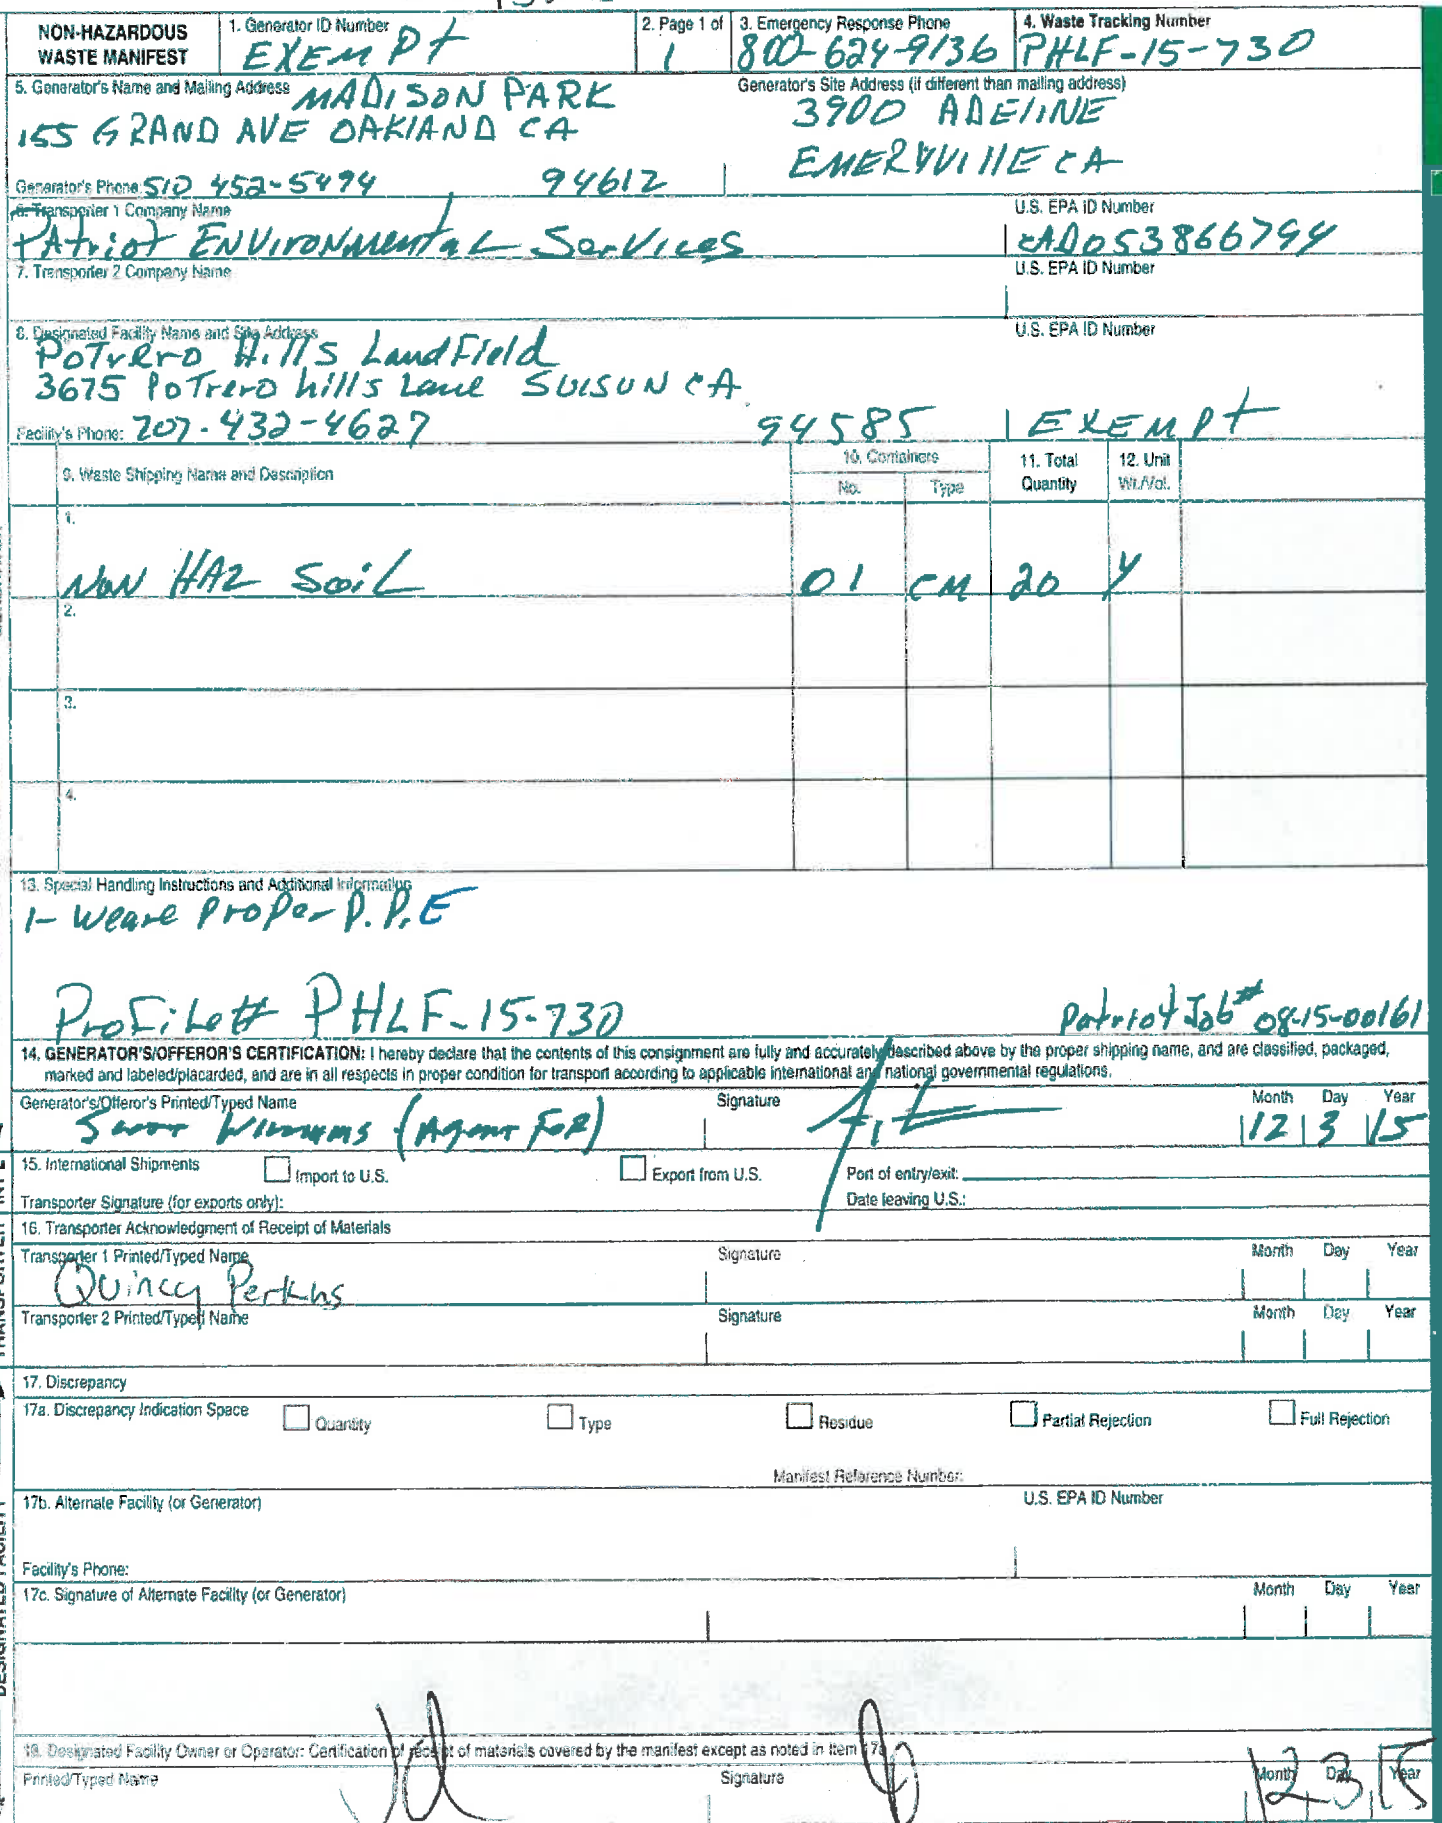 NON-HAZARDOUS WASTE MANIFEST
1. Generator ID Number
EXEMPt
2. Page 1 of
1
3. Emergency Response Phone
800-624-9136
4. Waste Tracking Number
PHLF-15-730
5. Generator's Name and Mailing Address MADISON PARK
155 GRAND AVE OAKLAND CA
Generator's Phone: 510 452-5494 94612
Generator's Site Address (if different than mailing address)
3900 ADELINE
EMERYVILLE CA
6. Transporter 1 Company Name
PAtriot ENVIRONMentAL Services
U.S. EPA ID Number
CAD053866794
7. Transporter 2 Company Name
U.S. EPA ID Number
8. Designated Facility Name and Site Address
U.S. EPA ID Number
PoTrero Hills LandField
3675 PoTrero hills Lane SUISUN CA
Facility's Phone: 707-432-4627 94585 EXEMPt
9. Waste Shipping Name and Description
10. Containers
No.
Type
11. Total Quantity
12. Unit Wt./Vol.
1.
NoN HAZ SoiL 01 CM 20 Y
2.
3.
4.
13. Special Handling Instructions and Additional Information
1- Weare Proper P.P.E
ProFile# PHLF-15-730
Patriot Job# 08-15-00161
14. GENERATOR'S/OFFEROR'S CERTIFICATION: I hereby declare that the contents of this consignment are fully and accurately described above by the proper shipping name, and are classified, packaged,
marked and labeled/placarded, and are in all respects in proper condition for transport according to applicable international and national governmental regulations.
Generator's/Offeror's Printed/Typed Name
Signature
Month Day Year
(Agent FOR)
12 3 15
15. International Shipments
Import to U.S.
Export from U.S.
Port of entry/exit:
Transporter Signature (for exports only):
Date leaving U.S.:
16. Transporter Acknowledgment of Receipt of Materials
Transporter 1 Printed/Typed Name
Signature
Month Day Year
Quincy Perkins
Transporter 2 Printed/Typed Name
Signature
Month Day Year
17. Discrepancy
17a. Discrepancy Indication Space
Quantity
Type
Residue
Partial Rejection
Full Rejection
Manifest Reference Number:
17b. Alternate Facility (or Generator)
U.S. EPA ID Number
Facility's Phone:
17c. Signature of Alternate Facility (or Generator)
Month Day Year
18. Designated Facility Owner or Operator: Certification of receipt of materials covered by the manifest except as noted in Item 17a
Printed/Typed Name
Signature
Month Day Year
12 3 15